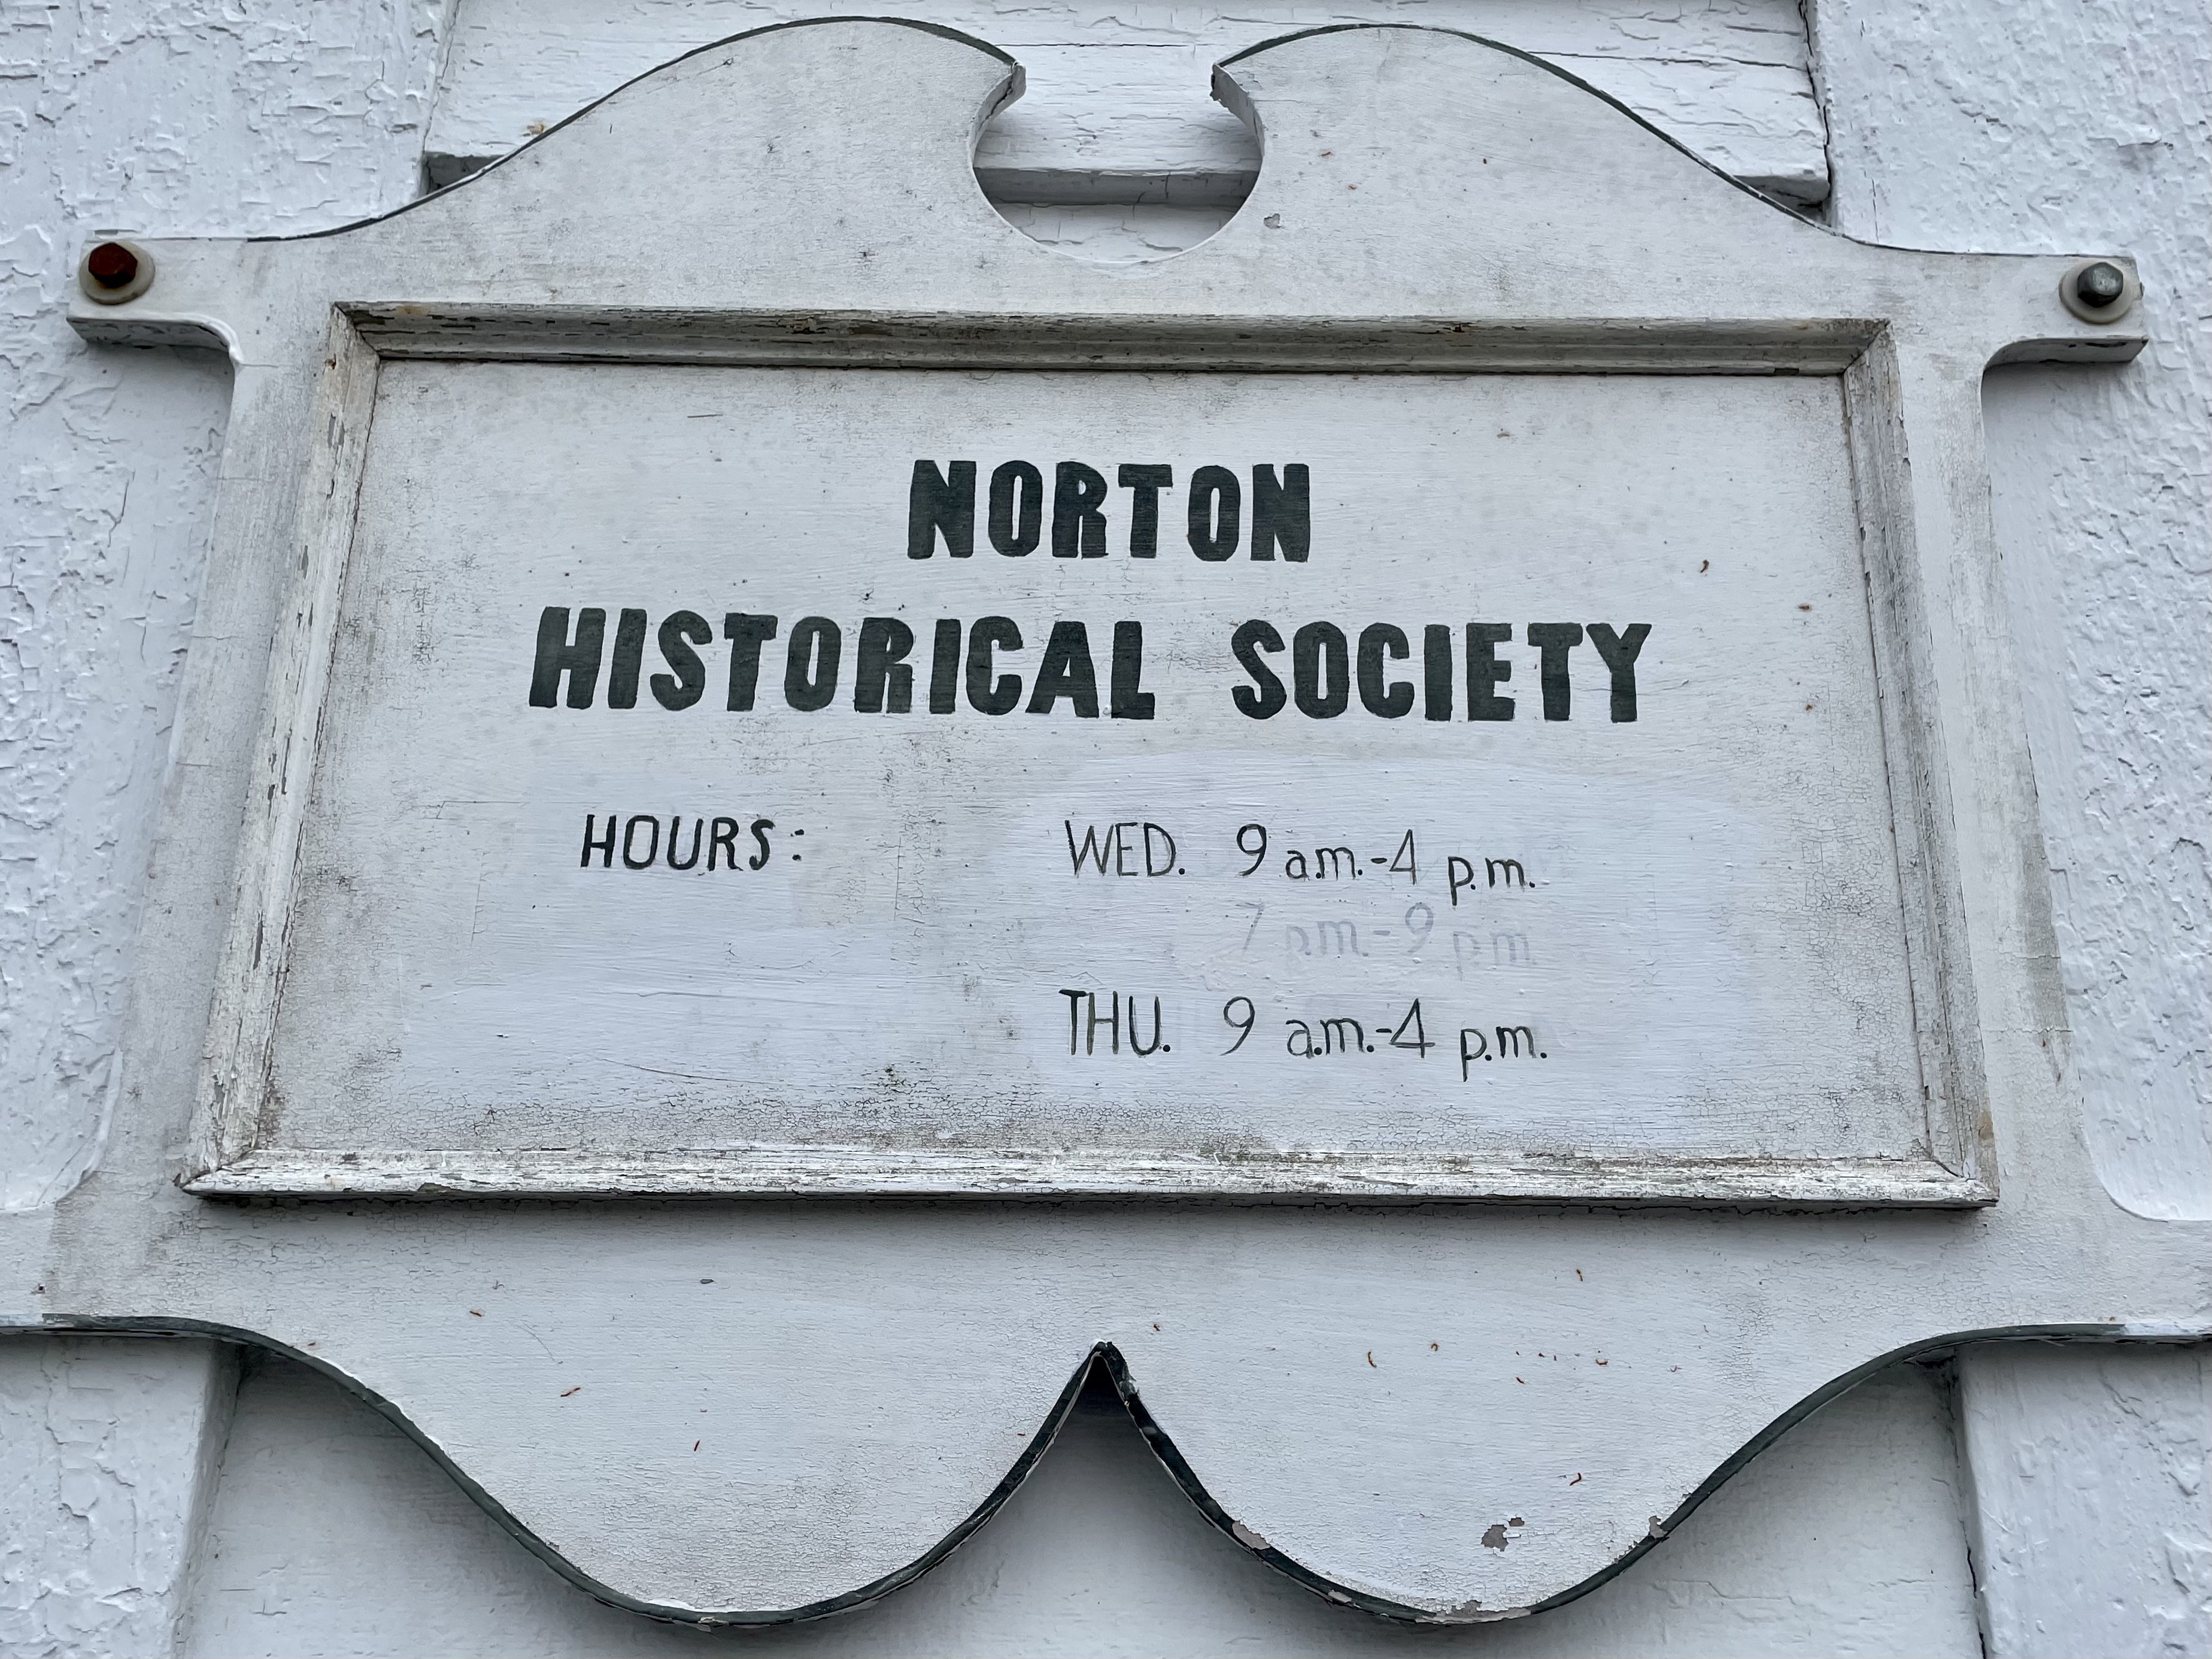 NORTON
HISTORICAL SOCIETY
HOURS: WED. 9 a.m.-4 p.m.
7 pm-9 pm
THU. 9 a.m.-4 p.m.